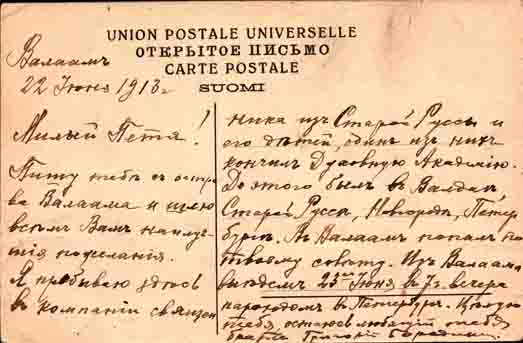 UNION POSTALE UNIVERSELLE
ОТКРЫТОЕ ПИСЬМО
CARTE POSTALE
SUOMI
Валаамъ
22 Іюня 1913 г.
Милый Петя!
Пишу тебѣ съ остро
ва Валаама и шлю
всѣмъ Вамъ наилуч
шія пожеланія.
Я пребываю здѣсь
въ компаніи священ
ника изъ Старой Руссы и
его дѣтей, одинъ изъ нихъ
кончилъ Духовную Академію.
До этого былъ въ Валдаѣ,
Старой Руссѣ, Новгородѣ, Петер
бургѣ. На Валаамъ попалъ по
твоему совѣту. Изъ Валаама
выѣдемъ 23го Іюня въ 7 ч. вечера
пароходомъ въ Петербургъ. Цѣлую
тебя, остаюсь любящій тебя
братъ Григорій